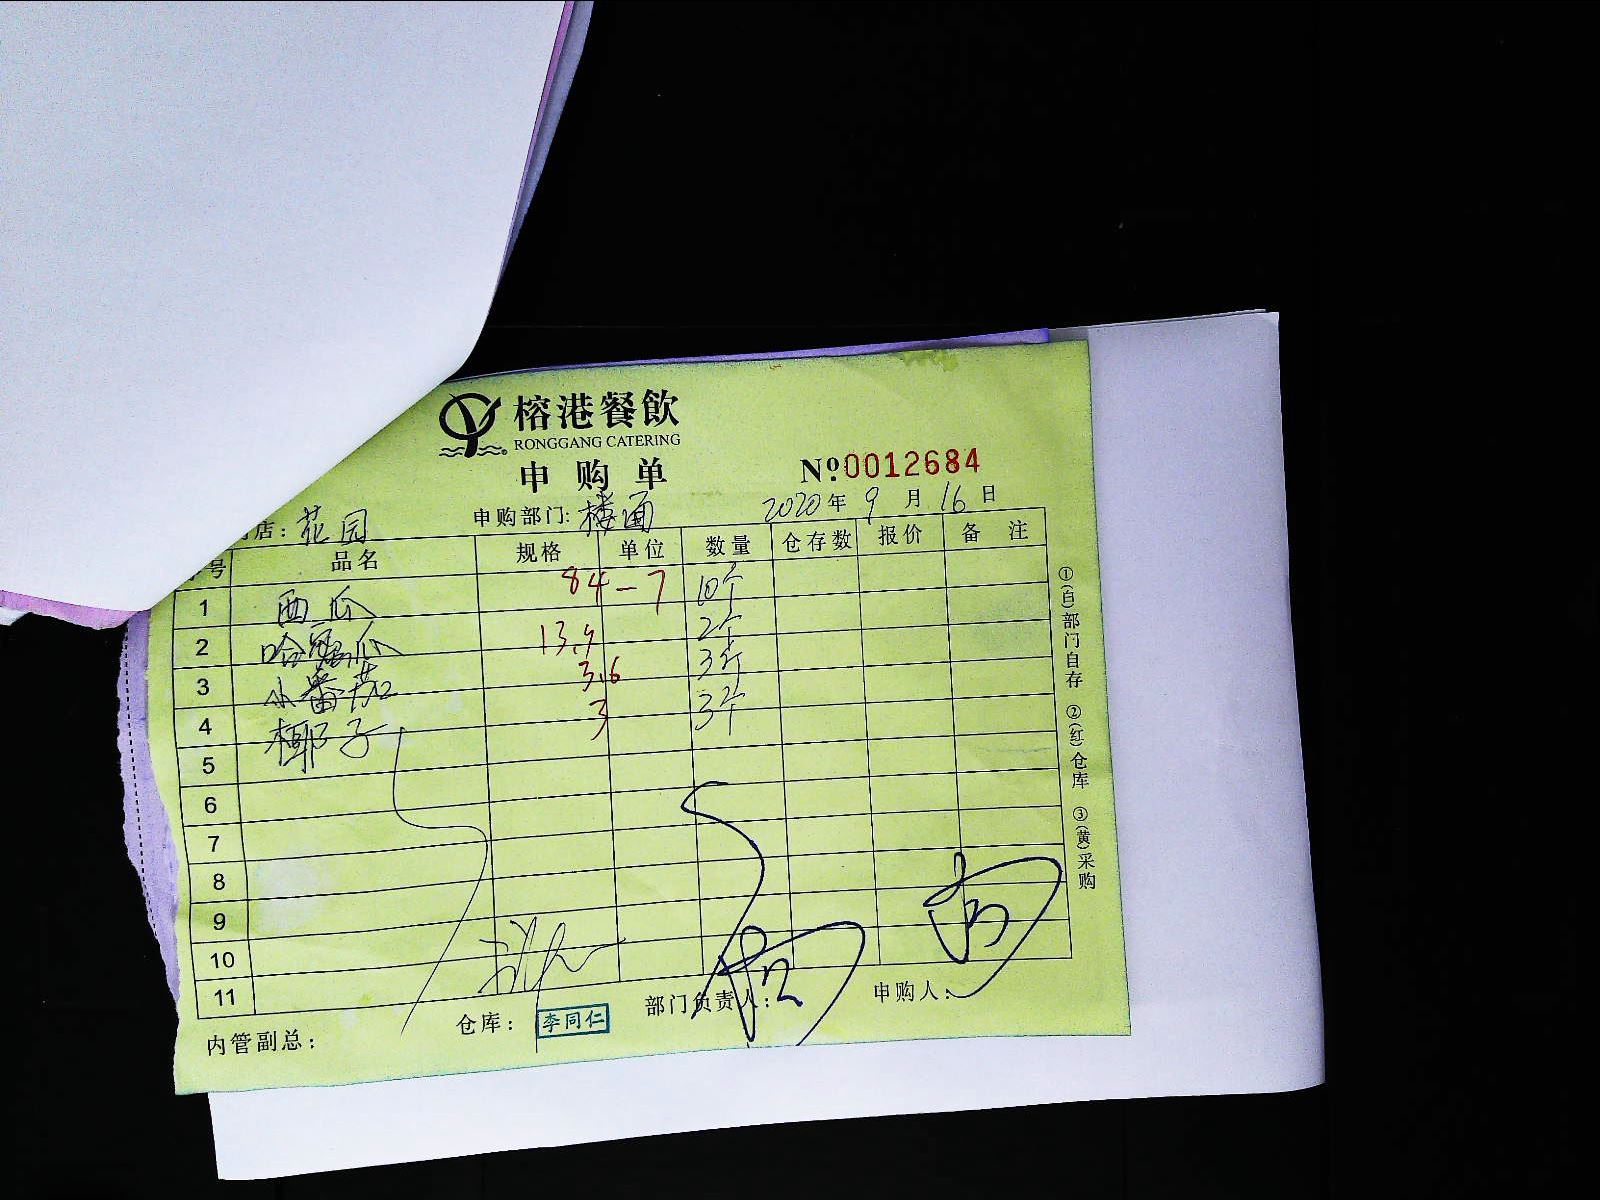 榕港餐飲
RONGGANG CATERING
申购单
№0012684
店：花园 申购部门：楼面 2020年9月16日
号 品名 规格 单位 数量 仓存数 报价 备 注
1 西瓜 84-7 10个
2 哈密瓜 13.9 2个
3 小番茄 3.6 3斤
4 椰子 3 3个
5
6
7
8
9
10
11
内管副总： 仓库：李同仁 部门负责人： 申购人：
①(白)部门自存 ②(红)仓库 ③(黄)采购